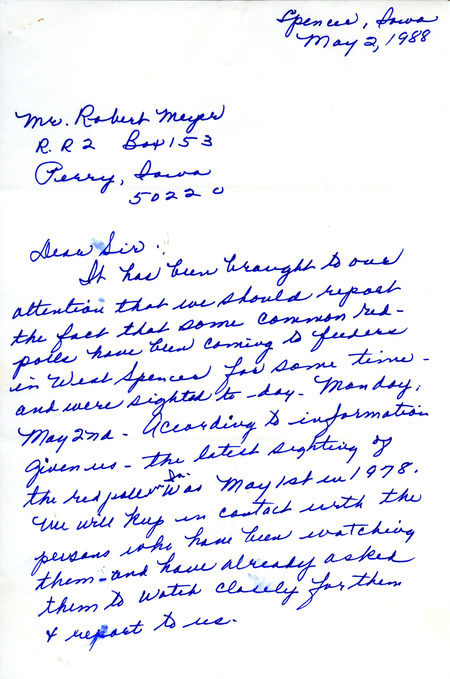 Spencer, Iowa
May 2, 1988
Mr. Robert Meyer
R. R 2 Box 153
Perry, Iowa
50220
Dear Sir:
It has been brought to our
attention that we should report
the fact that some common red-
polls have been coming to feeders
in West Spencer for some time -
and were sighted to-day - Monday,
May 2nd - According to information
given us - the latest sighting of
the redpoll Ia. was May 1st in 1978.
We will keep in contact with the
persons who have been watching
them - and have already asked
them to watch closely for them
& report to us.